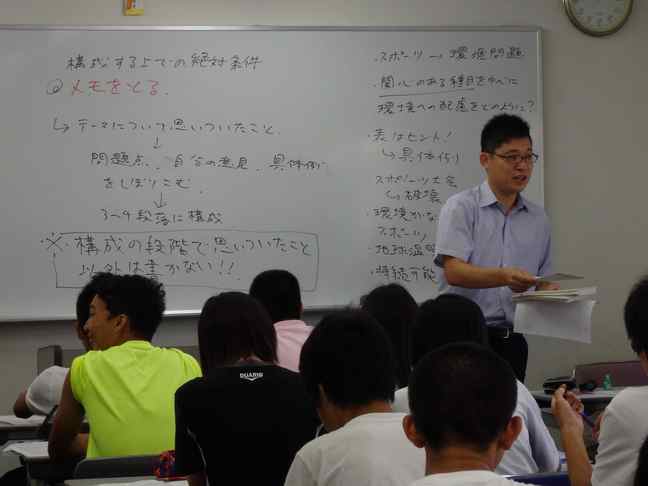 構成する上での絶対条件
@ メモをとる.
↳ テーマについて思いついたこと.
↓
問題点、自分の意見、具体例
をしぼりこむ.
↓
3〜4段落に構成
※・構成の段階で思いついたこと
以外は書かない!!
・スポーツ → 環境問題
・関心のある種目を中心に
環境への配慮をどのように?
・表はヒント!
↳ 具体例
スポーツ大会
↳ 破壊
・環境
スポーツ
・地球温
・持続可能
DUARIG